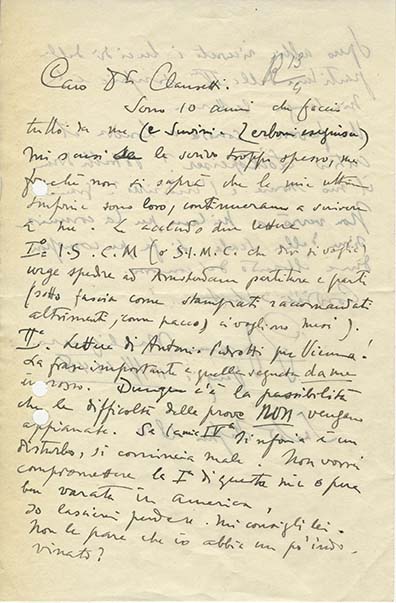 R 13/4
Caro Dr. Clausetti.
Sono 10 anni che faccio
tutto da me (e Suvini-Zerboni eseguisce)
mi scusi se le scrivo troppo spesso, ma
finché non si saprà che le mie ultime
sinfonie sono loro, continueranno a scrivere
a me. Le accludo due lettere
Iª. I.S.C.M (o S.I.M.C. che dir si voglia)
urge spedire ad Amsterdam partiture e parti
(sotto fascia come stampati raccomandati
altrimenti, come pacco, ci vogliono mesi).
IIª. Lettera di Antonio Pedrotti per Vienna!
La frase importante è quella segnata da me
in rosso. Dunque c'è la possibilità
che le difficoltà delle prove NON vengano
appianate. Se la mia IVª Sinfonia è un
disturbo, si comincia male. Non vorrei
compromettere la Iª di questa mia opera
ben varata in America,
Io lascerei perdere. Mi consigli lei.
Non le pare che io abbia un po' indo-
vinato?